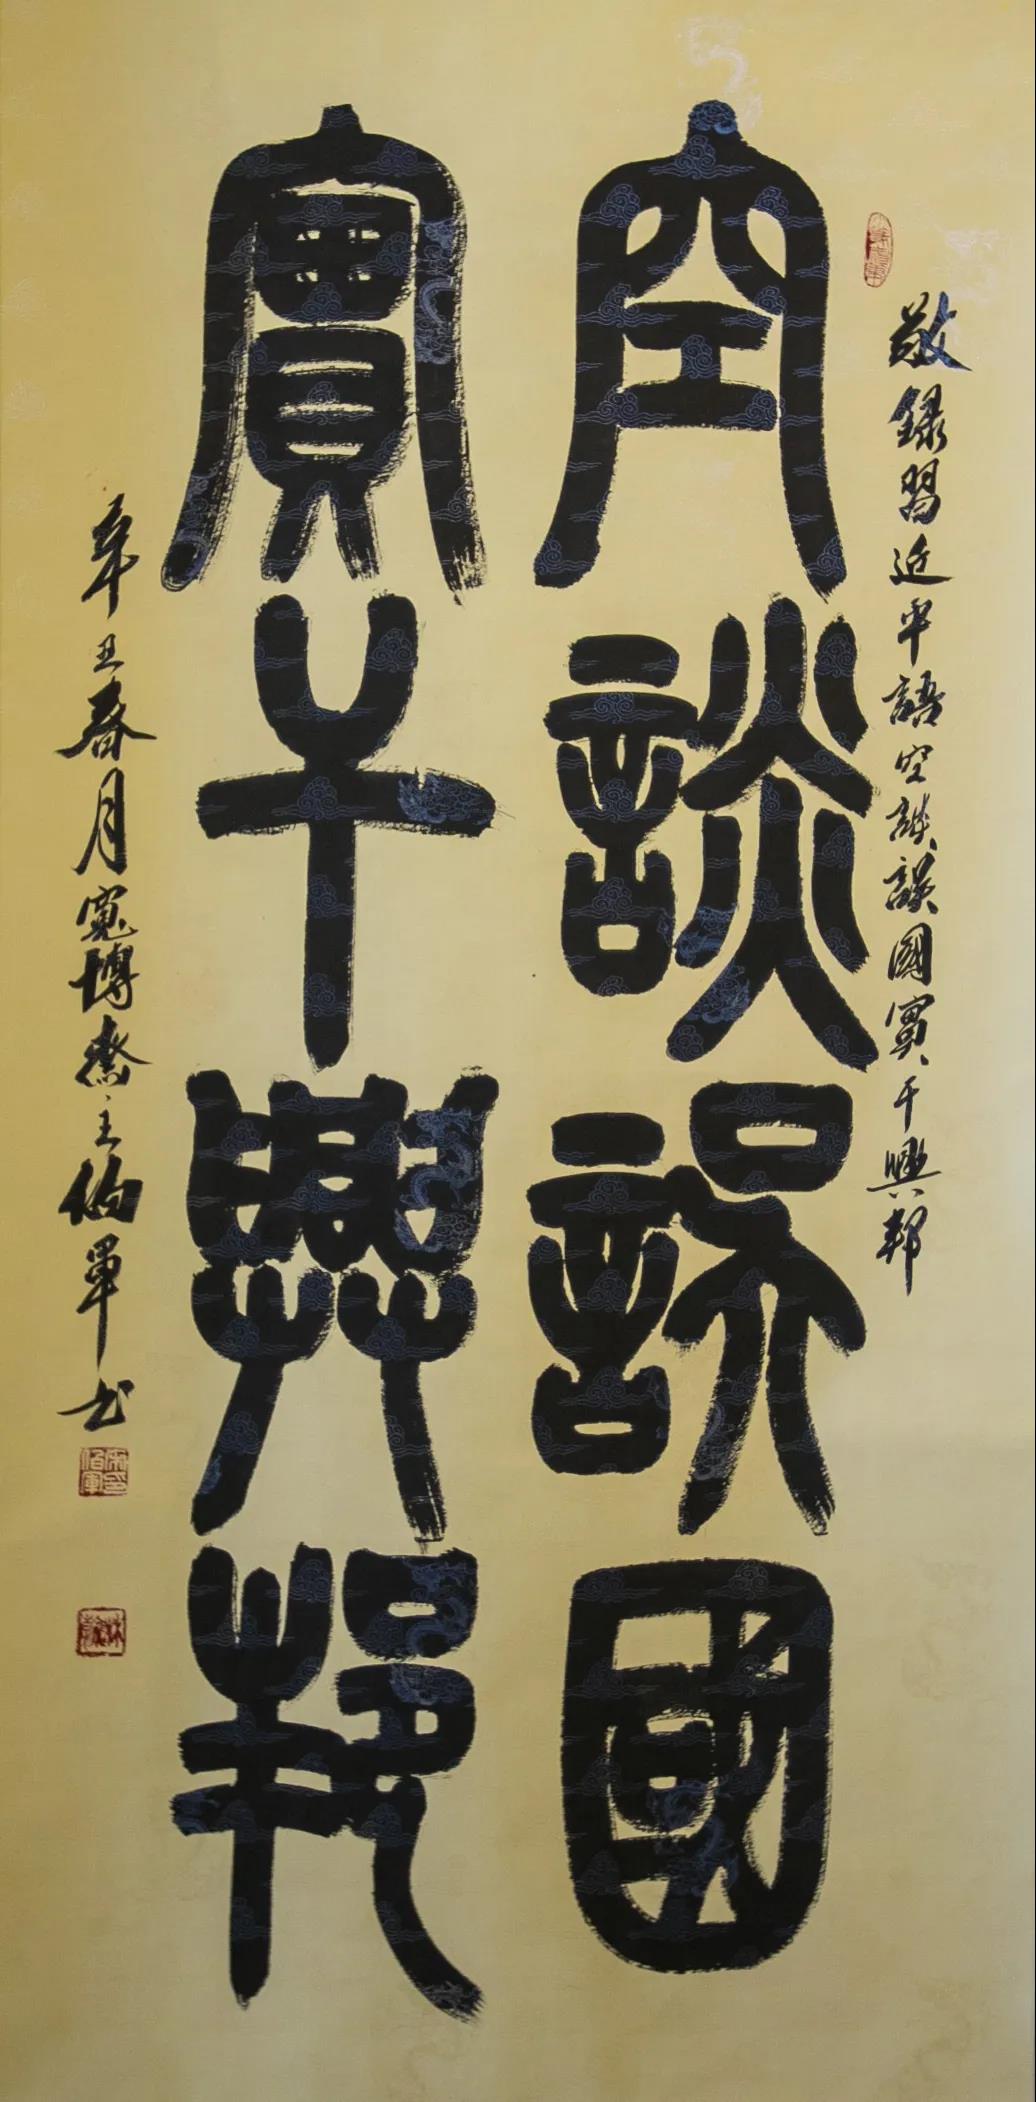 敬錄習近平語空談誤國實干興邦
空談誤國
實干興邦
辛丑春月寬博齋主伯軍书